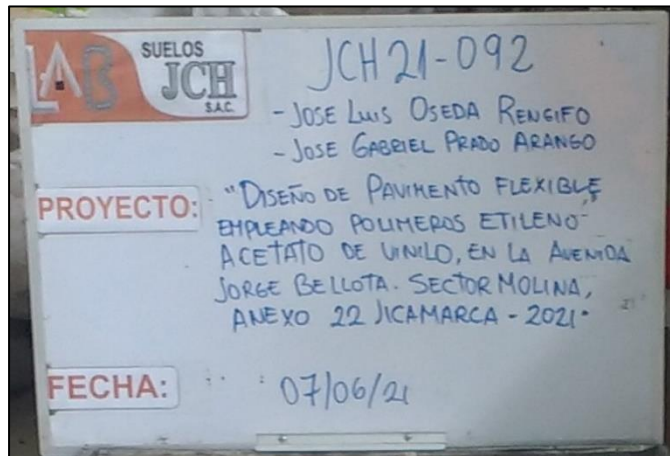 LAB
SUELOS
JCH
S.A.C.
JCH 21-092
- JOSE LUIS OSEDA RENGIFO
- JOSE GABRIEL PRADO ARANGO
PROYECTO:
"DISEÑO DE PAVIMENTO FLEXIBLE,
EMPLEANDO POLIMEROS ETILENO-
ACETATO DE VINILO, EN LA AVENIDA
JORGE BELLOTA. SECTOR MOLINA,
ANEXO 22 JICAMARCA - 2021"
FECHA:
07/06/21